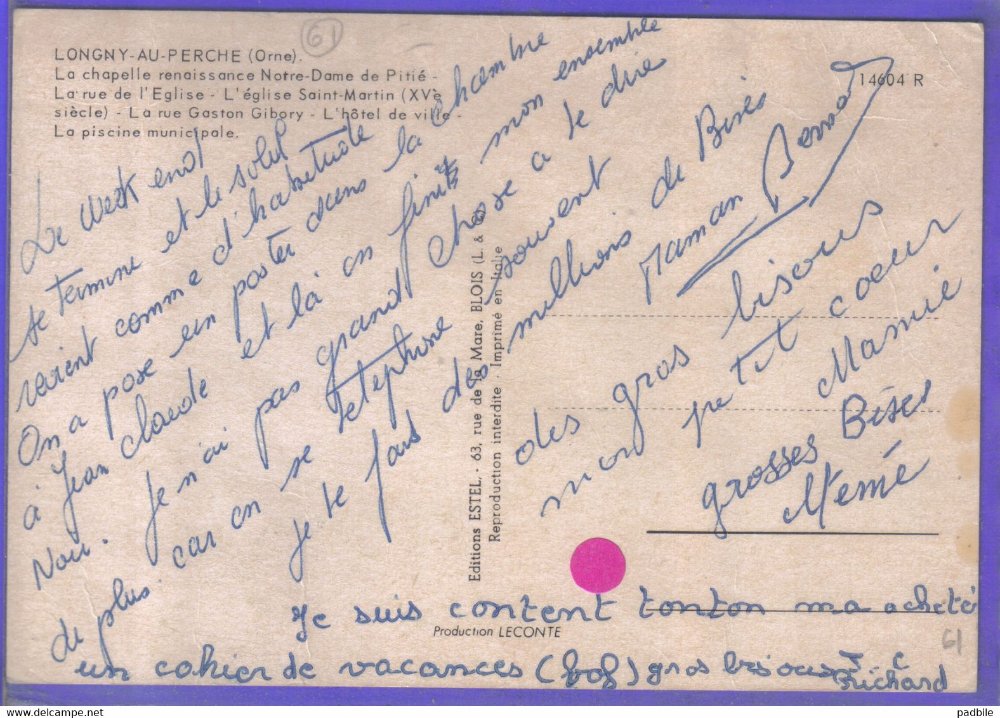 61
LONGNY-AU-PERCHE (Orne).
La chapelle renaissance Notre-Dame de Pitié -
La rue de l'Eglise - L'église Saint-Martin (XVe
siècle) - La rue Gaston Gibory - L'hôtel de ville -
La piscine municipale.
14604 R
Le week end
se termine et le soleil
revient comme d'habitude
On a pose un poster dans la chambre
à Jean claude et là on finit mon ensemble
Nou. Je n'ai pas grand chose a te dire
de plus car on se telephone souvent
je te fais des millions de Bises
Maman
des gros bisous
mon petit coeur
Mamie
grosses Bises
Memé
Editions ESTEL - 63, rue de la Mare, BLOIS (L. & C
Reproduction interdite - Imprimé en Italie
Production LECONTE
Je suis content tonton ma acheté
un cahier de vacances (bof) gros bisous
61
padbile